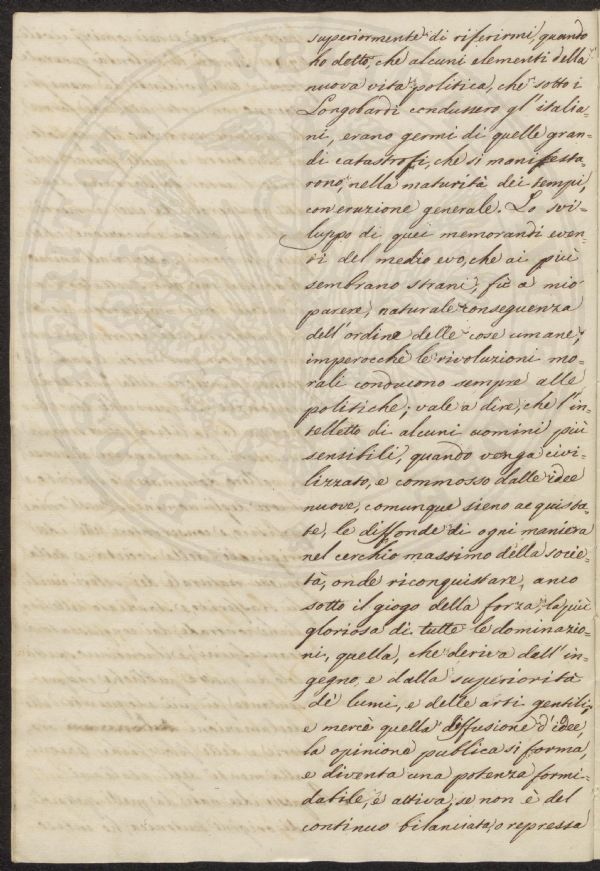 superiormente di riferirmi, quando
ho detto, che alcuni elementi della
nuova vita politica, che sotto i
Longobardi condussero gl'italia-
ni, erano germi di quelle gran-
di catastrofi, che si manifesta-
rono, nella maturità dei tempi,
con eruzione generale. Lo svi-
luppo di quei memorandi even-
ti del medio evo, che ai più
sembrano strani, fù a mio
parere, naturale conseguenza
dell'ordine delle cose umane;
imperocchè le rivoluzioni mo-
rali conducono sempre alle
politiche; vale a dire, che l'in-
telletto di alcuni uomini più
sensibili, quando venga civi-
lizzato, e commosso dalle idee
nuove, comunque sieno acquista-
te, le diffonde di ogni maniera
nel cerchio massimo della socie-
tà, onde riconquistare, anco
sotto il giogo della forza, la più
gloriosa di tutte le dominazio-
ni, quella, che deriva dall'in-
gegno, e dalla superiorità
de lumi, e delle arti gentili;
e mercè quella diffusione d'idee,
la opinione pubblica si forma,
e diventa una potenza formi-
dabile, e attiva, se non è del
continuo bilanciata, o repressa